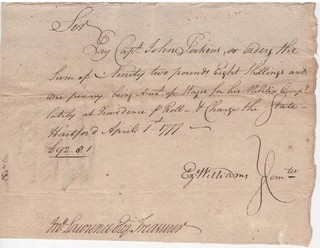 Sir
Pay Capt. John Perkins, or order the
Sum of Ninety two pounds Eight Shillings and
one penny being Amot. of Wages for his Militia Compa.
lately at Providence pr Roll & Charge the State
Hartford April 1st 1777
£92.8.1
Ez. Williams } Comtee
Mr. Lawrence Esq Treasurer